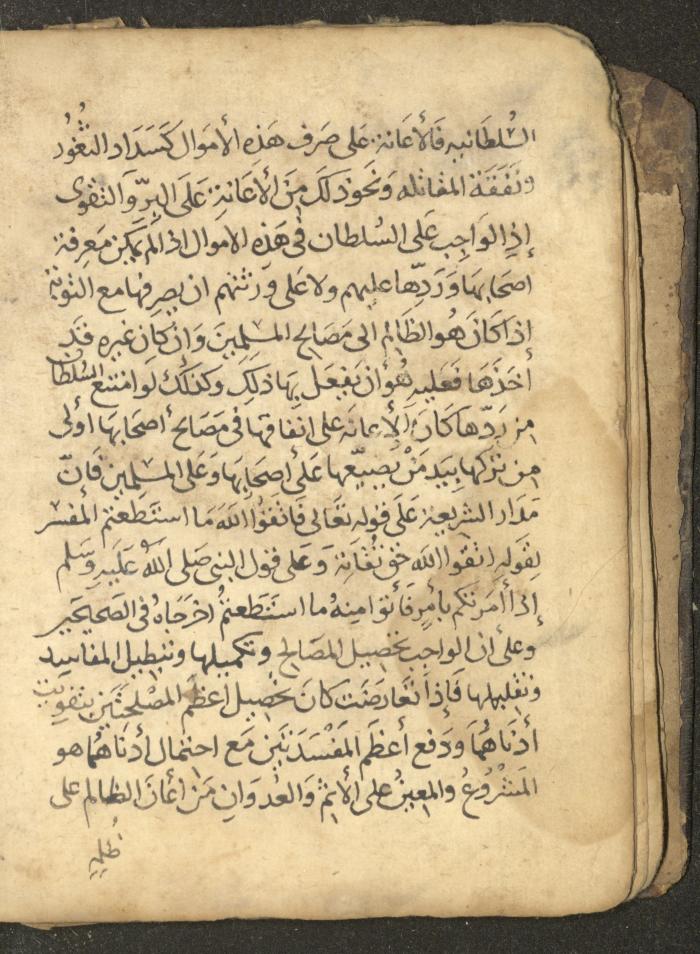 السلطانيه فالأعانة على صرف هذه الأموال كسداد الثغور
ونفقة المقاتله ونحو ذلك من الأعانة على البر والتقوى
إذ الواجب على السلطان فى هذه الاموال اذا لم يمكن معرفة
اصحابها وردها عليهم ولا على ورثتهم ان يصرفها مع التوبة
إذا كان هو الظالم الى مصالح المسلمين وان كان غيره قد
أخذها فعليه هو أن يفعل بها ذلك وكذلك لو امتنع السلطان
من ردها كان الأعانة على انفاقها فى مصالح أصحابها أولى
من تركها بيد من يضيعها على أصحابها وعلى المسلمين فان
مدار الشريعة على قوله تعالى فاتقوا الله ما استطعتم المفسر
لقوله اتقوا الله حق تقاته وعلى قول النبى صلى الله عليه وسلم
إذا أمرتكم بأمر فأتوا منه ما استطعتم اخرجاه فى الصحيحين
وعلى ان الواجب تحصيل المصالح وتكميلها وتبطيل المفاسد
وتقليلها فإذا تعارضت كان تحصيل أعظم المصلحتين بتفويت
أدناهما ودفع أعظم المفسدتين مع احتمال أدناهما هو
المشروع والمعين على الأثم والعدوان من أعان الظالم على
ظلمه